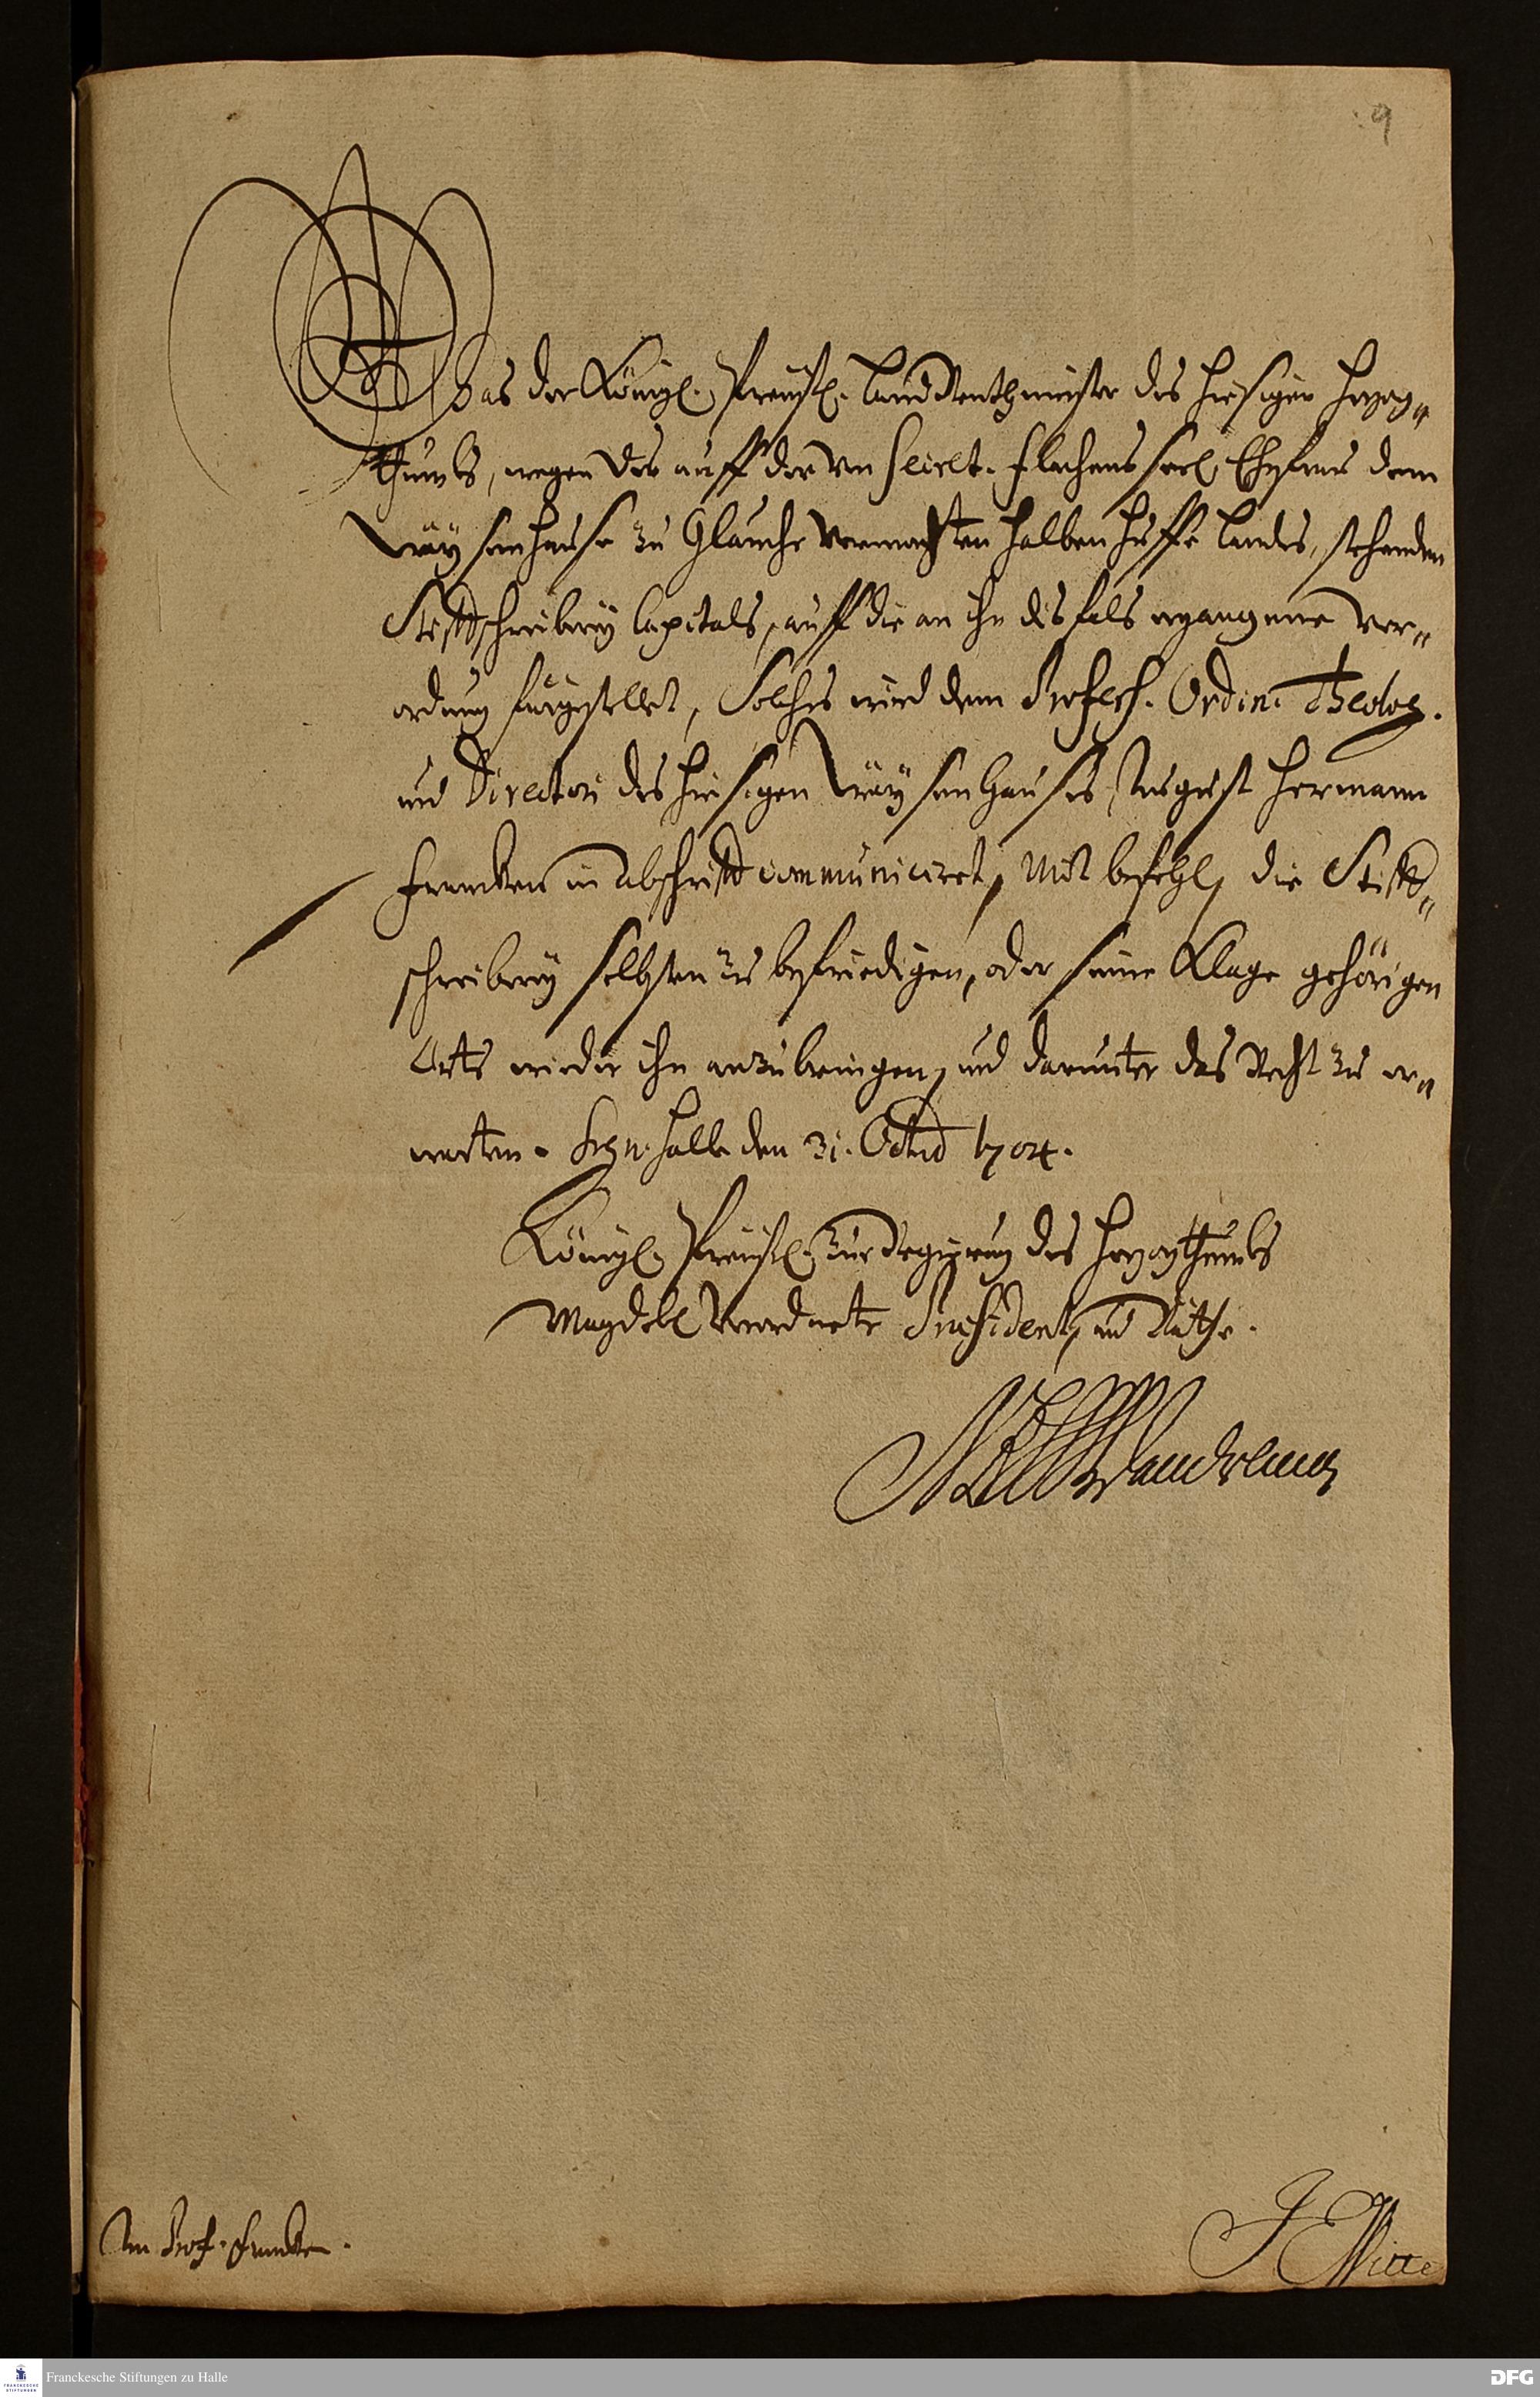 9
Was der Königl. Preußl. Land Renthmeister des hiesigen Herzog„
thumbs, wegen des auff der von Secret. Flachens seel. Ehefrau dem
Wäysenhause zu Glaucha vermachten halben Huffe Landes, stehenden
Stifftschreiberey Capitals, auff die an ihn disfals ergangene Ver„
ordnung fürgestellet, Solches wird dem Profess. Ordin. Theolog.
und Directori des hiesigen Wäysenhauses, August Hermann
Francken in Abschrifft communiciret, Mit befehl, die Stifft„
schreiberey selbsten zu befriedigen, oder seine Klage gehörigen
Orts wieder ihn anzubringen, und darunter das Recht zu er„
warten. Sign. Halle den 31. Octob 1704.
Königl. Preußl. zur Regierung des Herzogthumbs
Magdeb. Verordnete Præsident, und Räthe.
An Prof. Francken.
J Witte
Franckesche Stiftungen zu Halle
FRANCKESCHE STIFTUNGEN
DFG